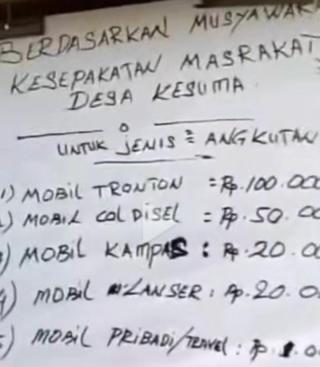 BERDASARKAN MUSYAWAR
KESEPAKATAN MASRAKAT
DESA KESUMA
UNTUK JENIS² ANGKUTAN
1) MOBIL TRONTON = Rp. 100.000
2) MOBIL COL DISEL = Rp. 50.00
3) MOBIL KAMPAS : Rp. 20.00
4) MOBIL LANSER : Rp. 20.0
5) MOBIL PRIBADI/TRAVEL : Rp